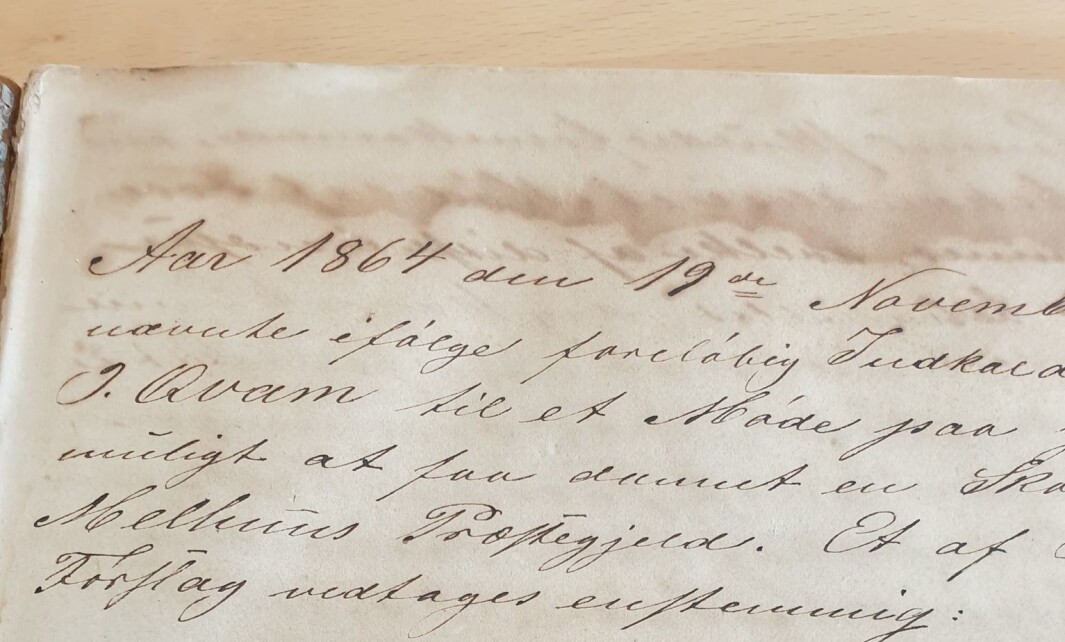 Aar 1864 den 19de Novemb
nævnte ifølge foreløbig Indkald
J. Qvam til et Møde paa
muligt at faa dannet en Sko
Melhuus Præstegjeld. Et af
Forslag vedtages enstemmig: